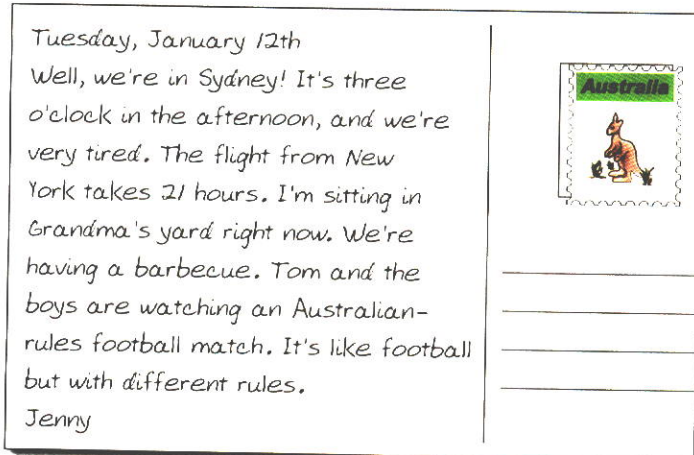 Tuesday, January 12th
Well, we're in Sydney! It's three
o'clock in the afternoon, and we're
very tired. The flight from New
York takes 21 hours. I'm sitting in
Grandma's yard right now. We're
having a barbecue. Tom and the
boys are watching an Australian-
rules football match. It's like football
but with different rules.
Jenny
Australia